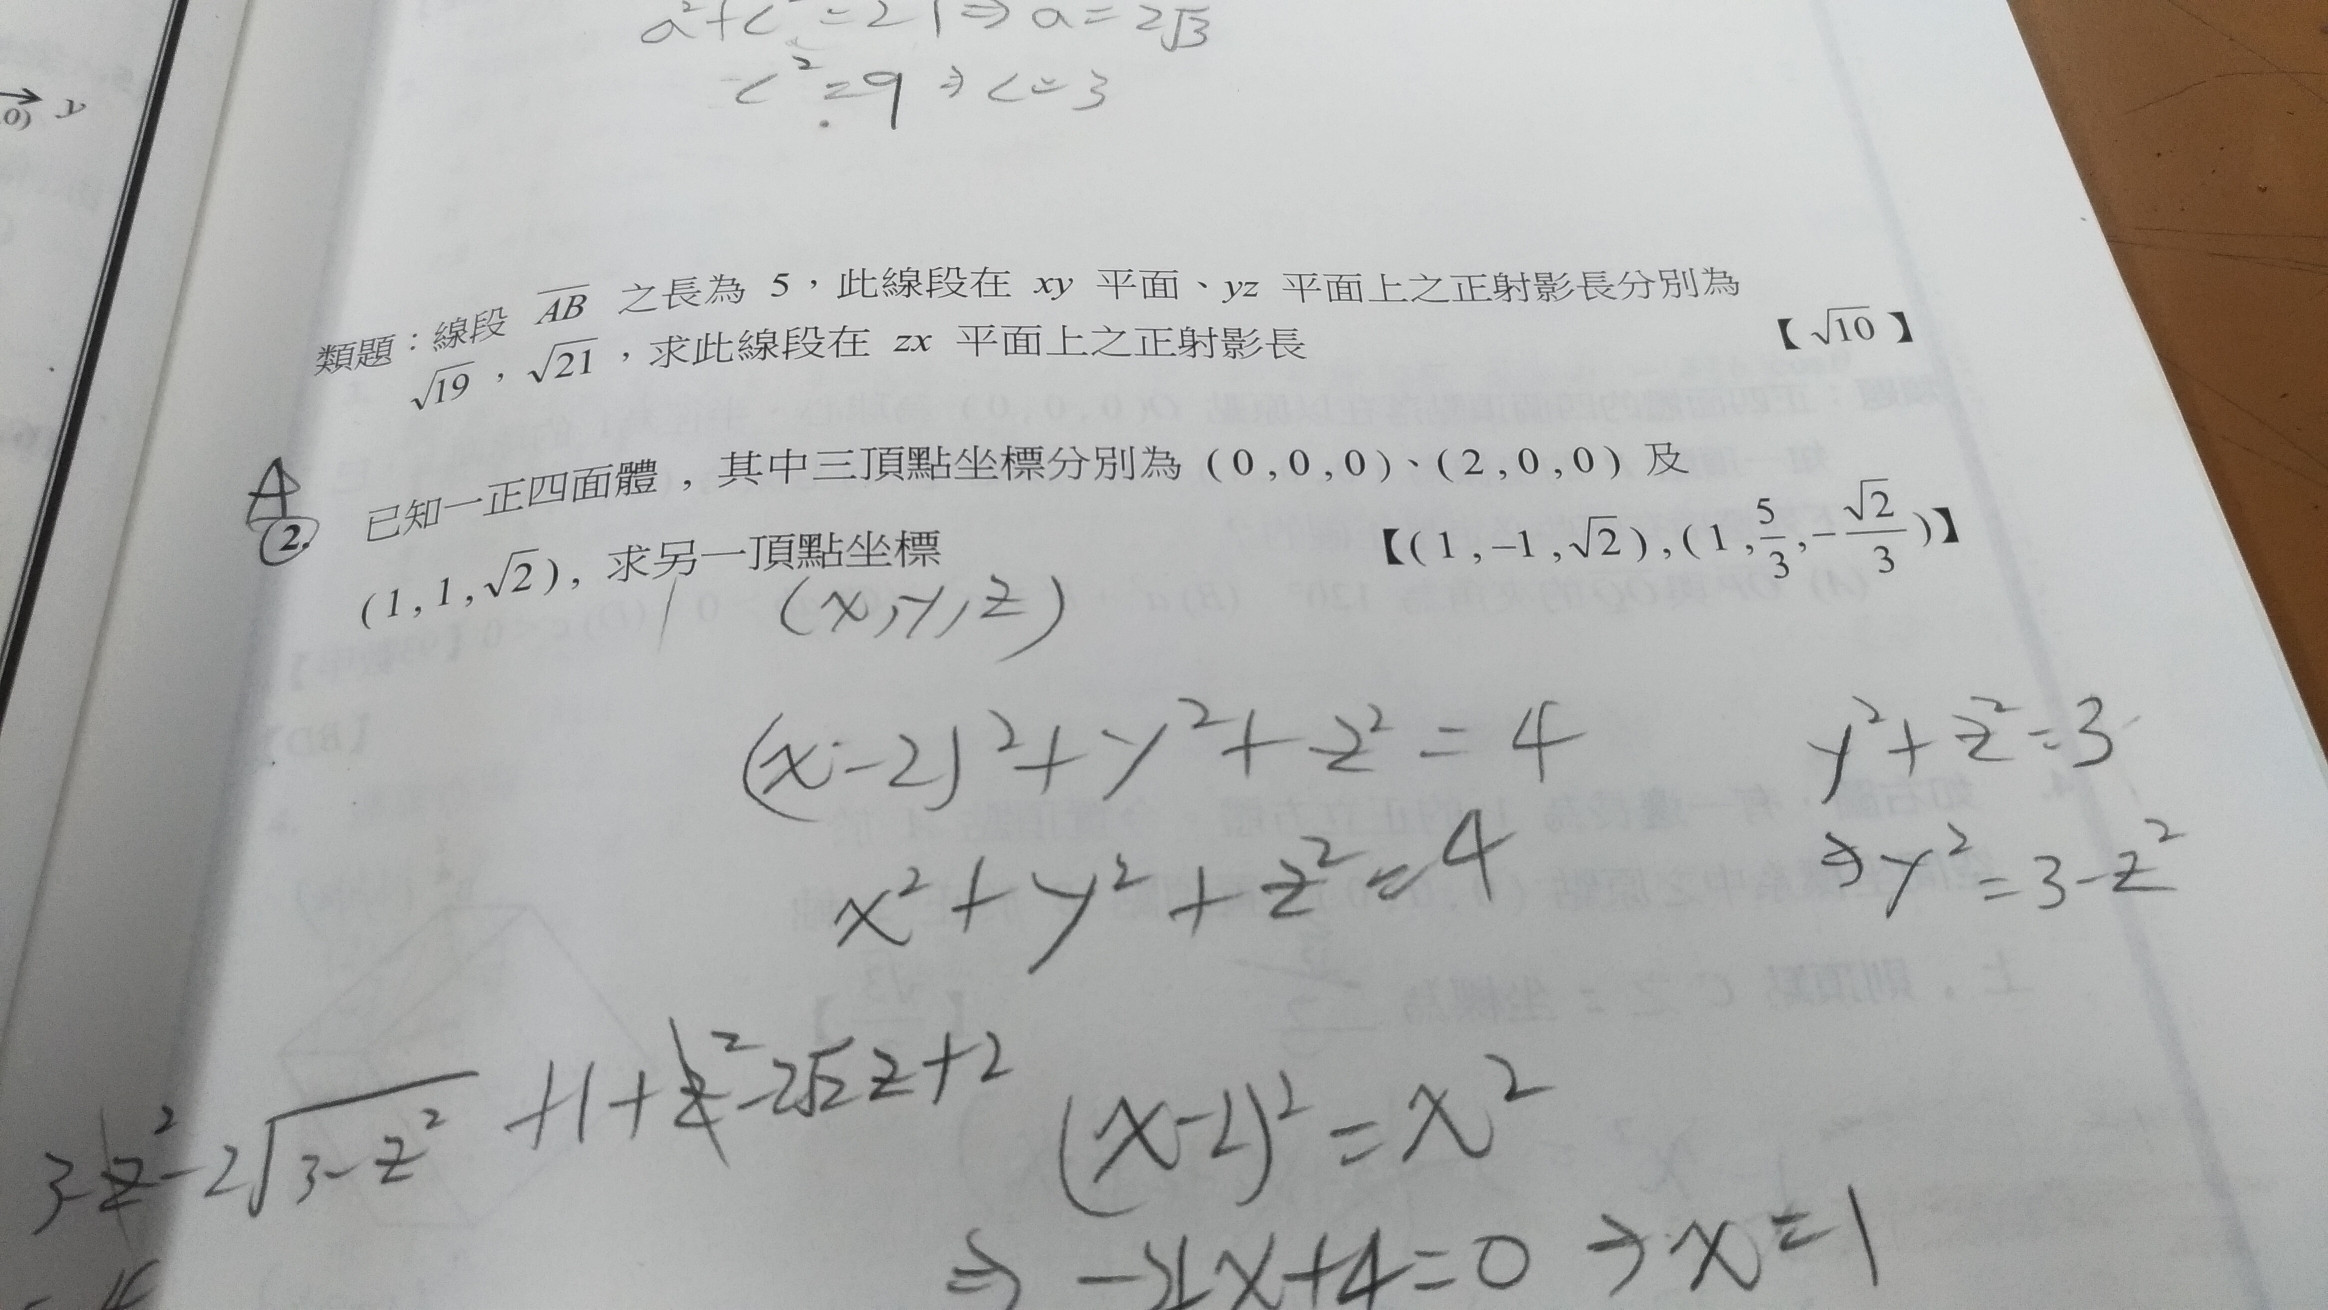 a²+c²=21⇒a=2√3
c²=9⇒c=3
類題：線段 AB 之長為 5，此線段在 xy 平面、yz 平面上之正射影長分別為
√19，√21，求此線段在 zx 平面上之正射影長 【√10】
A
2. 已知一正四面體，其中三頂點坐標分別為 (0,0,0)、(2,0,0) 及
(1,1,√2)，求另一頂點坐標 【(1,−1,√2),(1,5/3,−√2/3)】
(x,y,z)
(x-2)²+y²+z²=4 y²+z²=3
x²+y²+z²=4 ⇒y²=3-z²
3-z²-2√(3-z²)+1+z²-2√2z+2
(x-2)²=x²
⇒ -4x+4=0 ⇒x=1